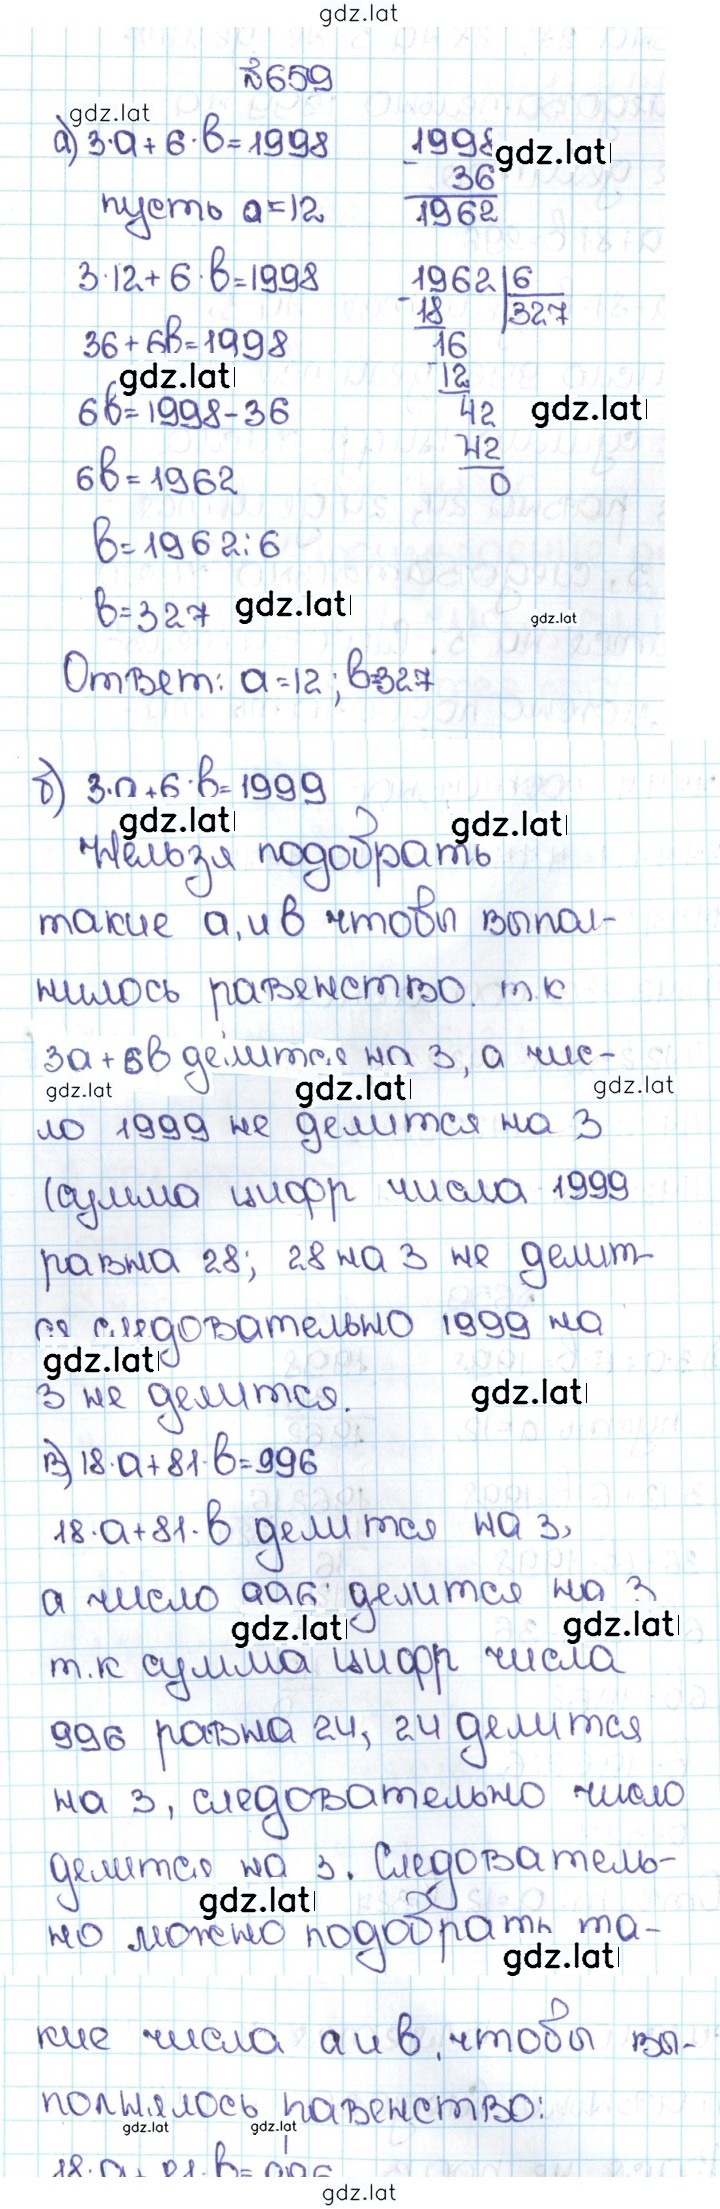 gdz.lat
№659
gdz.lat
а) 3·a+6·b=1998
1998
gdz.lat
- 36
1962
пусть a=12
3·12+6·b=1998
1962 | 6
- 18 327
36+6b=1998
16
gdz.lat
12
6b=1998-36
42
gdz.lat
42
6b=1962
0
b=1962:6
b=327
gdz.lat
gdz.lat
Ответ: a=12; b=327
б) 3·a+6·b=1999
gdz.lat
gdz.lat
Нельзя подобрать
такие a, и b чтобы выпол-
нилось равенство. т.к
3a+6b делится на 3, а чис-
gdz.lat
gdz.lat
gdz.lat
ло 1999 не делится на 3
(сумма цифр числа 1999
равна 28; 28 на 3 не делит-
ся следовательно 1999 на
gdz.lat
3 не делится.
gdz.lat
в) 18·a+81·b=996
18·a+81·b делится на 3,
а число 996 делится на 3
gdz.lat
gdz.lat
т.к сумма цифр числа
996 равна 24, 24 делится
на 3, следовательно число
делится на 3. Следователь-
gdz.lat
но можно подобрать та-
gdz.lat
кие числа a и b, чтобы вы-
полнялось равенство:
gdz.lat
gdz.lat
18·a+81·b=996
gdz.lat